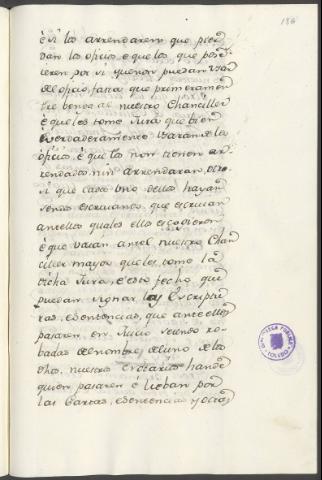 186
è si los arrendaren que pier
dan los oficios, è que los que pos
ieren por si que non puedan usar
del oficio, fasta que primeramen
tre bengan al nuestro Chanciller
è que les tome Jura que bien
è verdaderamente usaran de los
oficios, è que los non tienen ar
rendados nin arrendaran, otro
si que cada uno dellos hayan
sendos escrivanos, que escrivan
antellos quales ellos escogieren
è que vaian antel nuestro Chan
ciller mayor que les tome la
dicha Jura, è esto fecho que
puedan signar las Escriptu
ras, è sentencias, que ante ellos
pasaren, en Juicio seiendo ro
badas del nombre de uno de los
dhos. nuestros Notarios hande
quien pasaren è lieban por
las Cartas, è sentencias y otras
BIBLIOTECA PUBLICA
TOLEDO